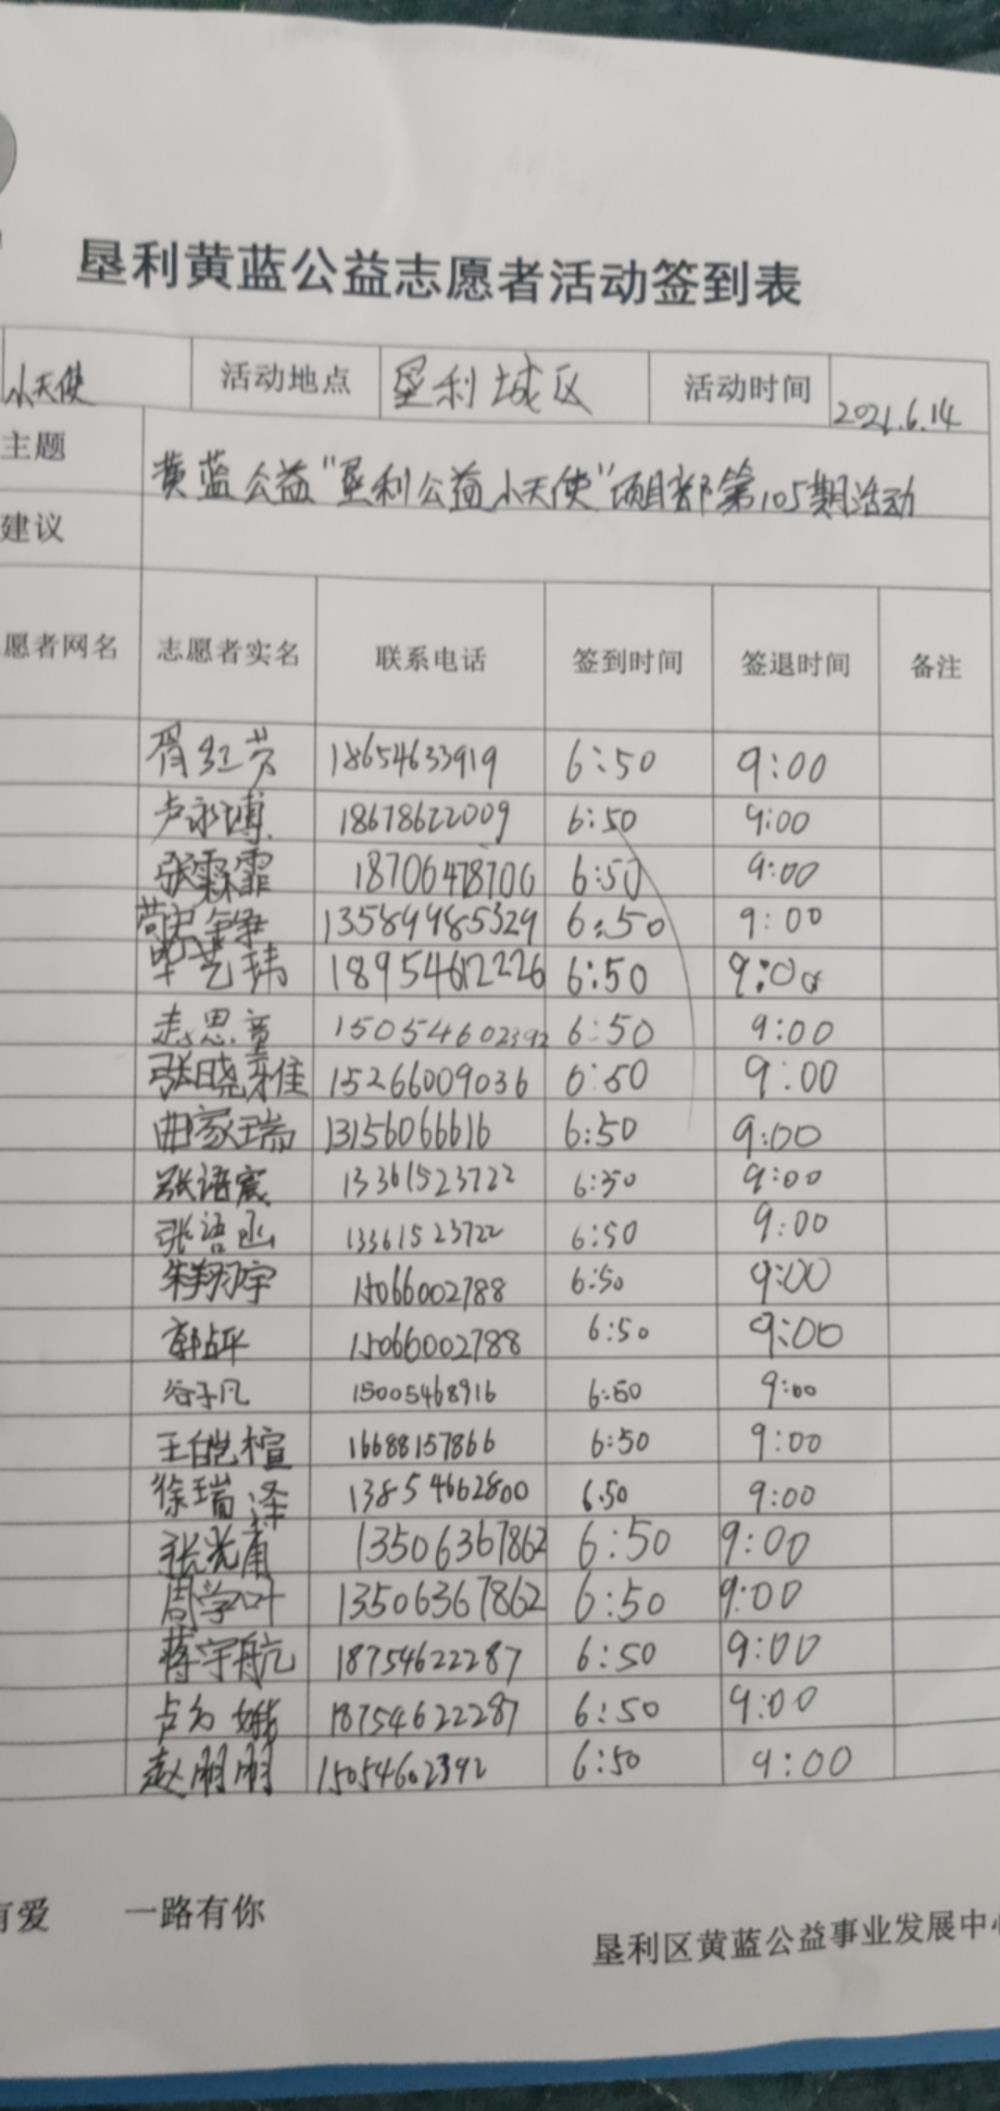 垦利黄蓝公益志愿者活动签到表
小天使 活动地点 垦利城区 活动时间 2021.6.14
主题 黄蓝公益"垦利公益小天使"项目部第105期活动
建议
愿者网名 志愿者实名 联系电话 签到时间 签退时间 备注
胥红芳 18654633919 6:50 9:00
卢永博 18678622009 6:50 9:00
张霖霏 18706478706 6:50 9:00
13589985329 6:50 9:00
艺玮 18954612226 6:50 9:00
思童 15054602392 6:50 9:00
张晓雅 15266009036 6:50 9:00
曲家瑞 13156066616 6:50 9:00
张语宸 13361523722 6:50 9:00
张语函 13361523722 6:50 9:00
朱翔宇 15066002788 6:50 9:00
郭占平 15066002788 6:50 9:00
谷子凡 15005468916 6:50 9:00
王皑楦 16688157866 6:50 9:00
徐瑞泽 13854662800 6:50 9:00
张光甫 13506367862 6:50 9:00
周学叶 13506367862 6:50 9:00
蒋宇航 18754622287 6:50 9:00
卢为娥 18754622287 6:50 9:00
赵朋朋 15054602392 6:50 9:00
有爱 一路有你
垦利区黄蓝公益事业发展中心